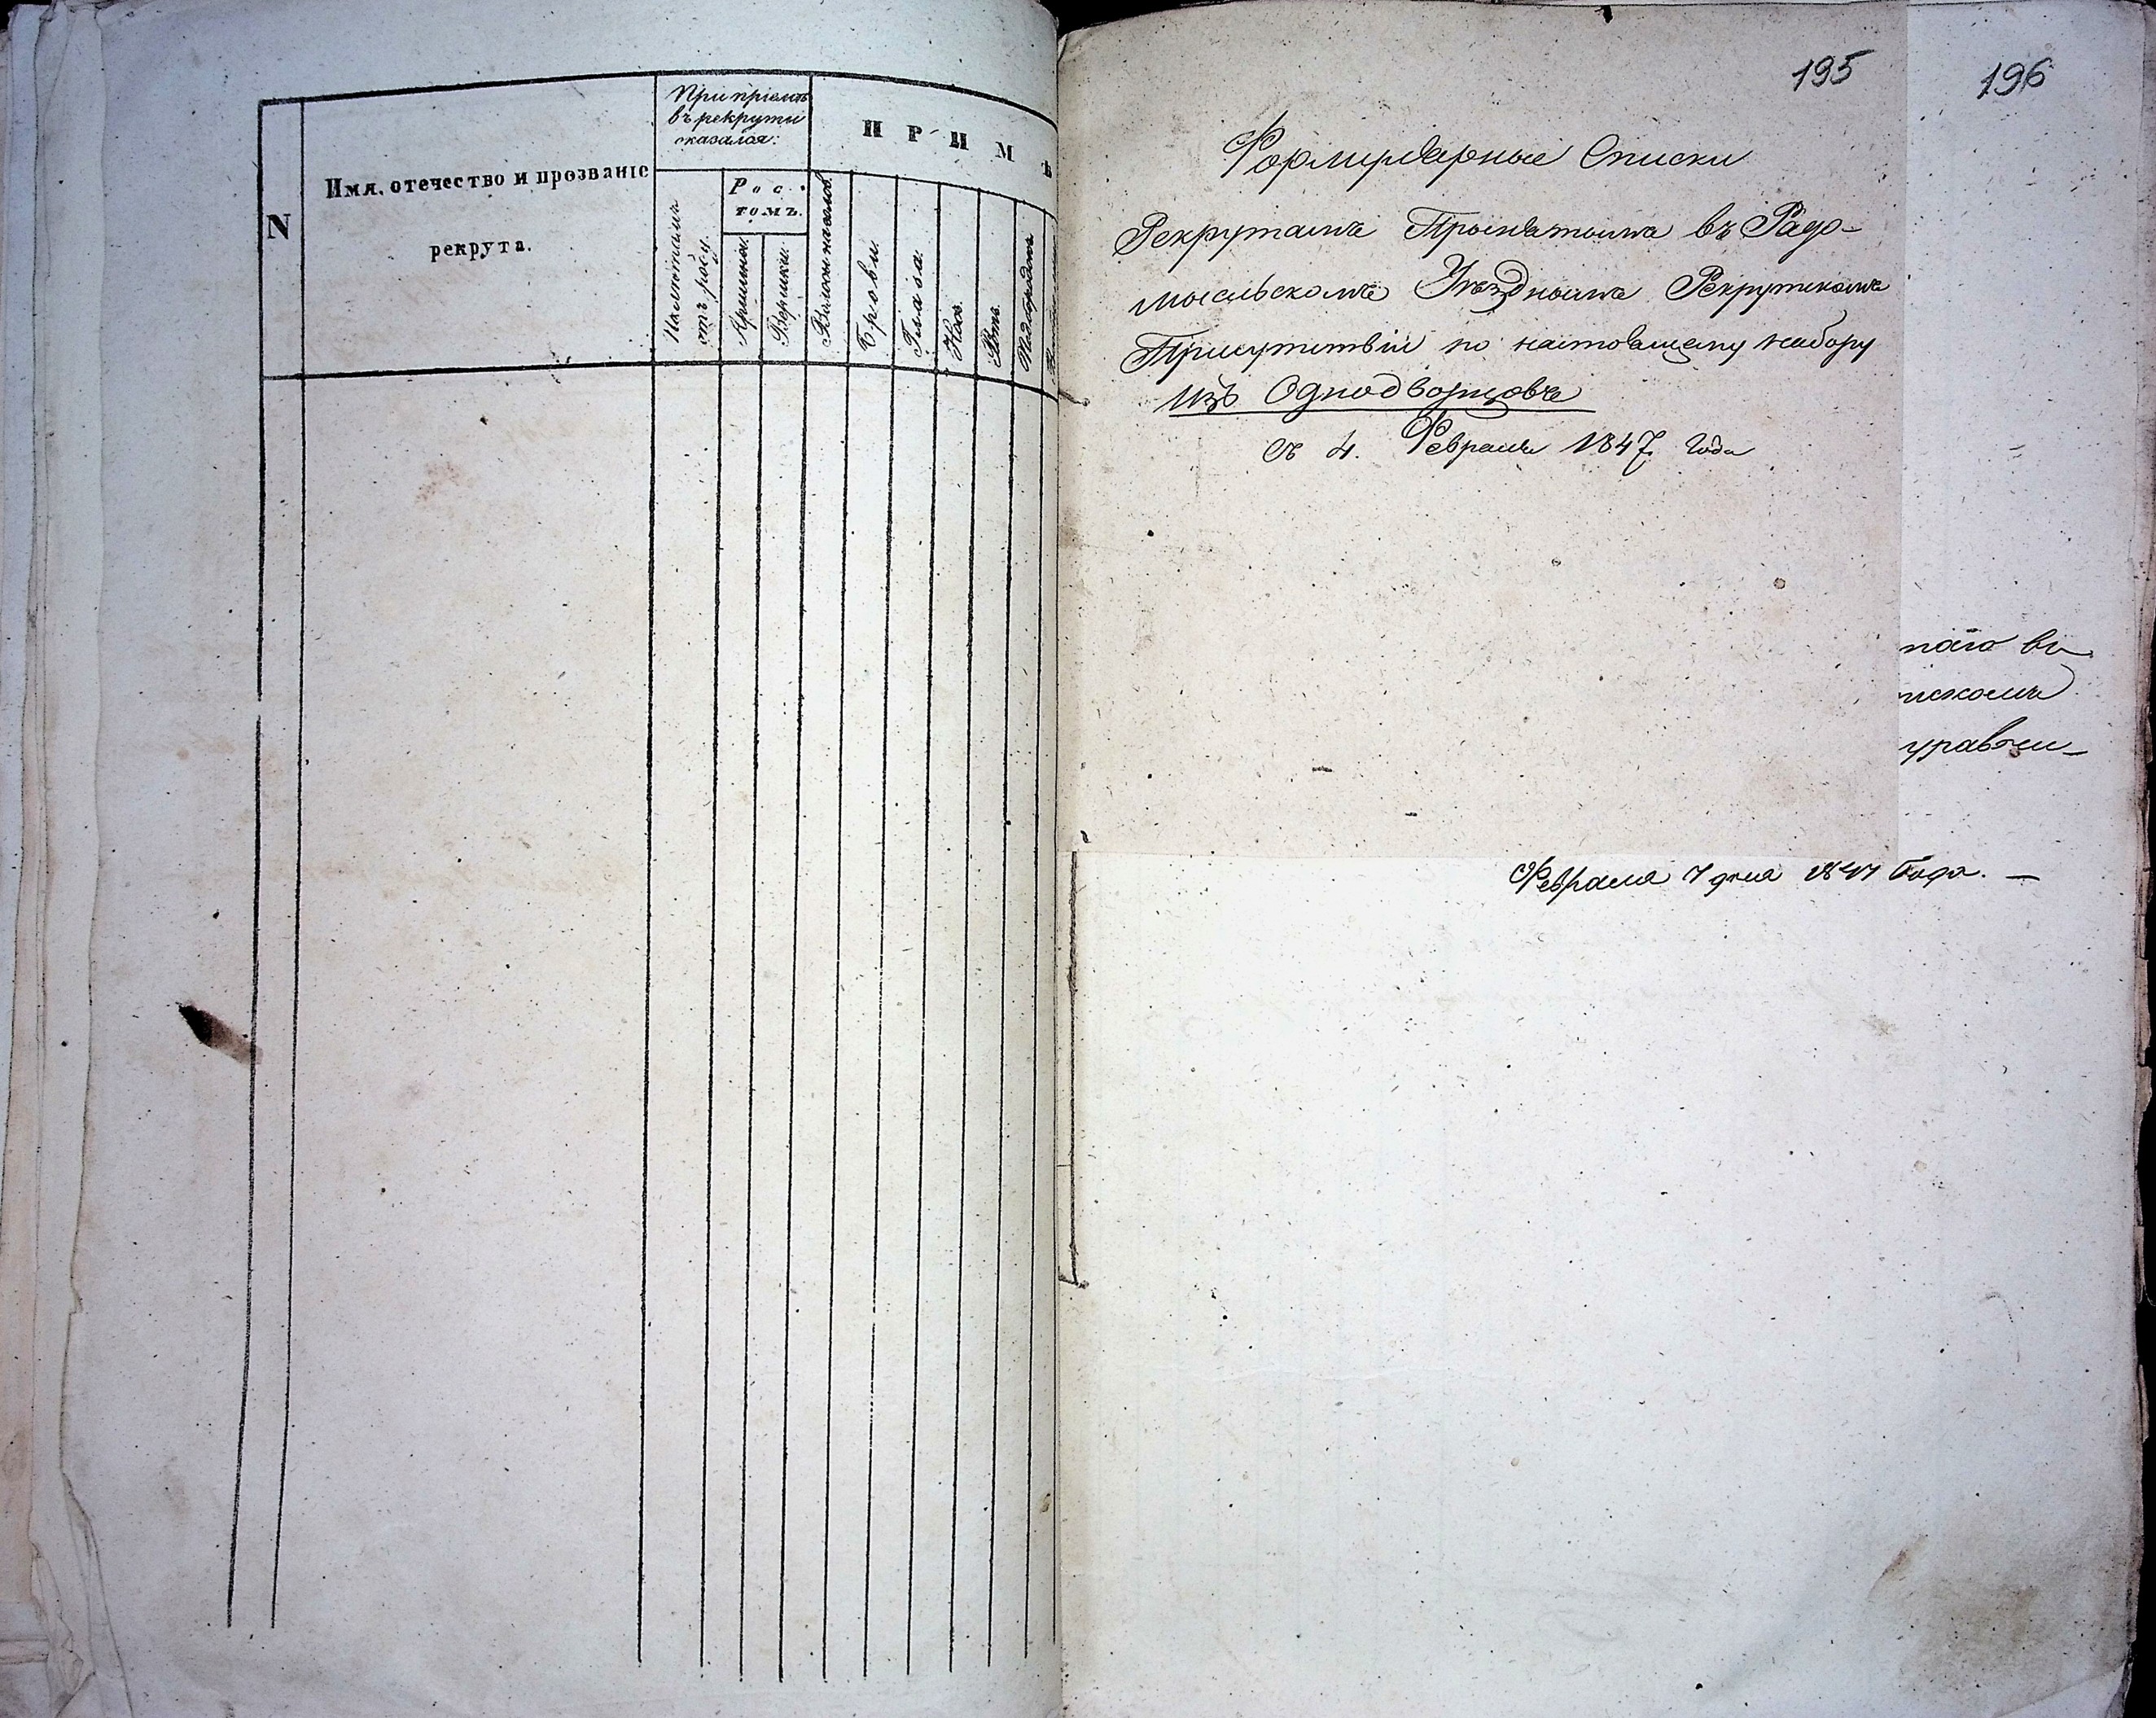 N
Имя, отечество и прозваніе
рекрута.
При пріемѣ
въ рекруты
оказался:
ПРИМѢ
Рос-
томъ.
отъ роду.
Аршины.
Вершки.
Брови.
Глаза.
Носъ.
Ротъ.
Подбородокъ
195
196
Формулярные Списки
Рекрутамъ Принятымъ въ Радо-
мысльскомъ Уѣздномъ Рекрутскомъ
Присутствіи по настоящему набору
изъ Однодворцовъ
4. Февраля 1847 Года
таго въ
Февраля 7 дня 1847 Года. —